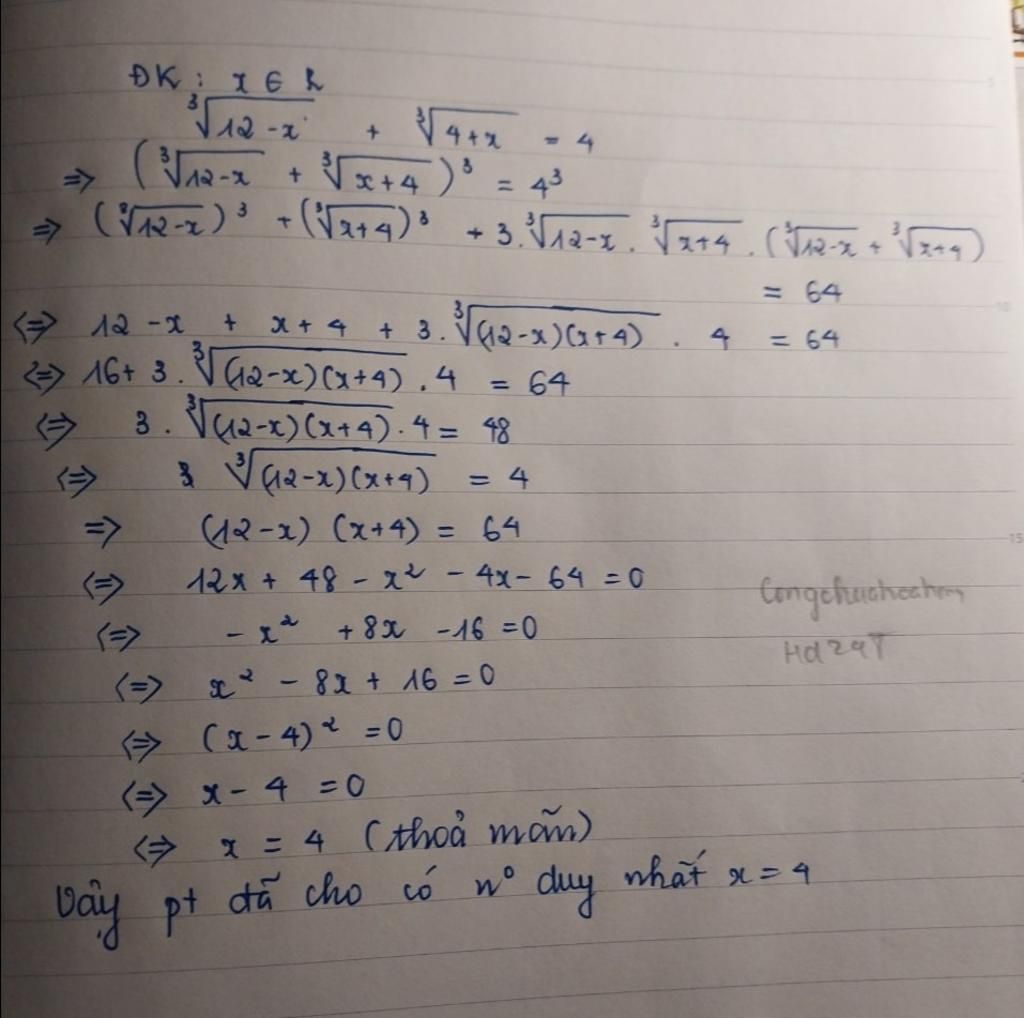 ĐK : x ∈ R
∛(12-x) + ∛(4+x) = 4
=> (∛(12-x) + ∛(x+4))³ = 4³
=> (∛(12-x))³ + (∛(x+4))³ + 3.∛(12-x) . ∛(x+4) . (∛(12-x) + ∛(x+4))
= 64
<=> 12 -x + x+4 + 3.∛((12-x)(x+4)) . 4 = 64
<=> 16+ 3.∛((12-x)(x+4)) .4 = 64
<=> 3.∛((12-x)(x+4)) .4 = 48
<=> ∛((12-x)(x+4)) = 4
=> (12-x) (x+4) = 64
<=> 12x + 48 - x² - 4x - 64 = 0
<=> - x² + 8x - 16 = 0
<=> x² - 8x + 16 = 0
<=> (x-4)² = 0
<=> x - 4 = 0
<=> x = 4 (thoả mãn)
Vậy pt đã cho có n° duy nhất x = 4